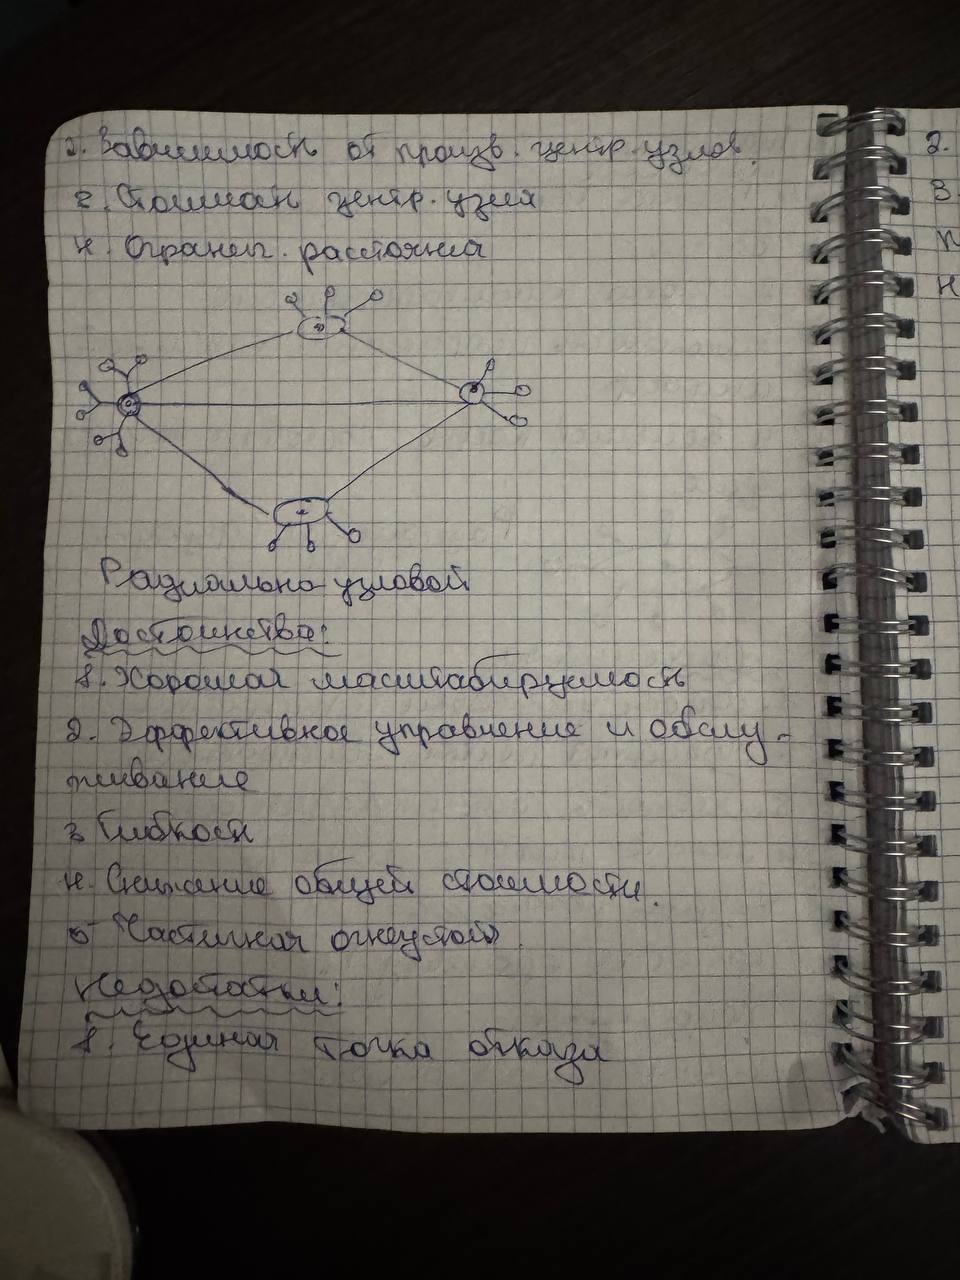 2. Зависимость от произв. центр. узлов.
Стоимость центр. узла
4. Огранич. расстояния
Радиально-узловой
Достоинства:
1. Хорошая масштабируемость
2. Эффективное управление и обслу-
живание
3 Гибкость
4. Снижение общей стоимости.
5 Частичная
Недостатки:
1. Единая точка отказа
2.
3.